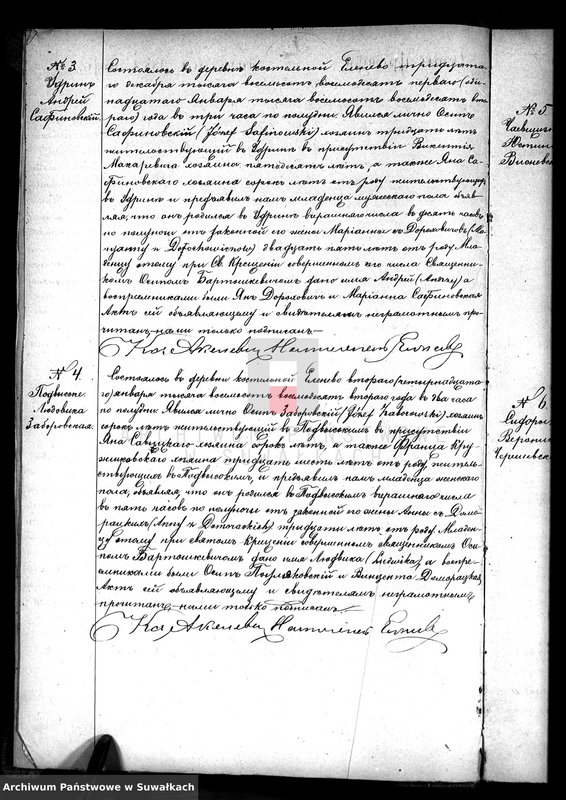 № 3
Удринъ
Андрей
Сафиновскій
Состоялось въ деревнѣ костельной Еленево тридцата-
го декабря тысяча восемьсотъ восемьдесятъ перваго (оди-
надцатаго Января тысяча восемьсотъ восемьдесятъ вто-
раго) года въ три часа по полудни. Явился лично Осипъ
Сафиновскій (Józef Safinowski) хозяинъ тридцать лѣтъ
жительствующій въ Удринѣ въ присутствіи Викентія
Макаревича хозяина пятьдесятъ лѣтъ, а также Яна Са-
финовскаго хозяина сорокъ лѣтъ отъ роду жительствующихъ
въ Удринѣ и предъявилъ намъ младенца мужескаго пола объяв-
ляя, что онъ родился въ Удринѣ вчрашняго числа въ десять часовъ
по полуночи отъ законной его жены Маріанны съ Дороховичовъ (Ma-
ryanny z Dorochowiczów) двадцать пять лѣтъ отъ роду. Мла-
денцу этому при Св. Крещеніи совершенномъ его числа Священни-
комъ Осипомъ Бартошкевичемъ дано имя Андрей (Andrzej) а
воспремниками были Янъ Дорохович и Маріанна Сафиновская
Актъ сей объявляющему и свидѣтелямъ неграмотнымъ про-
читанъ нами только подписанъ
№ 4
Подвысоке
Людовика
Заборовская
Состоялось въ деревни костельной Еленево втораго (четырнадцата-
го) января тысяча восемьсотъ восемьдесятъ втораго года въ два часа
по полудни. Явился лично Осипъ Заборовскій (Józef Zaborowski) хозяинъ
сорокъ лѣтъ жительствующій въ Подвысокимъ въ присутствіи
Яна Савицкаго хозяина сорокъ лѣтъ, а также Франца Кру-
жиковскаго хозяина тридцать шесть лѣтъ отъ роду, житель-
ствующихъ въ Подвысокимъ, и предъявилъ намъ младенца женскаго
пола, объявляя, что онъ родился въ Подвысокимъ вчрашняго числа
въ пять часовъ по полуночи отъ законной его жены Анны съ Дома-
рацкихъ (Anny z Domorackich) тридцати лѣтъ отъ роду. Младен-
цу этому при святомъ крещеніи совершенномъ священникомъ Оси-
помъ Бартошкевичемъ дано имя Людвика (Ludwika), а воспре-
емниками были Осипъ и Винцента Доморацкая,
Актъ сей объявляющему и свидѣтелямъ неграмотнымъ
прочитанъ нами только подписанъ.
№ 5
№ 6
Archiwum Państwowe w Suwałkach